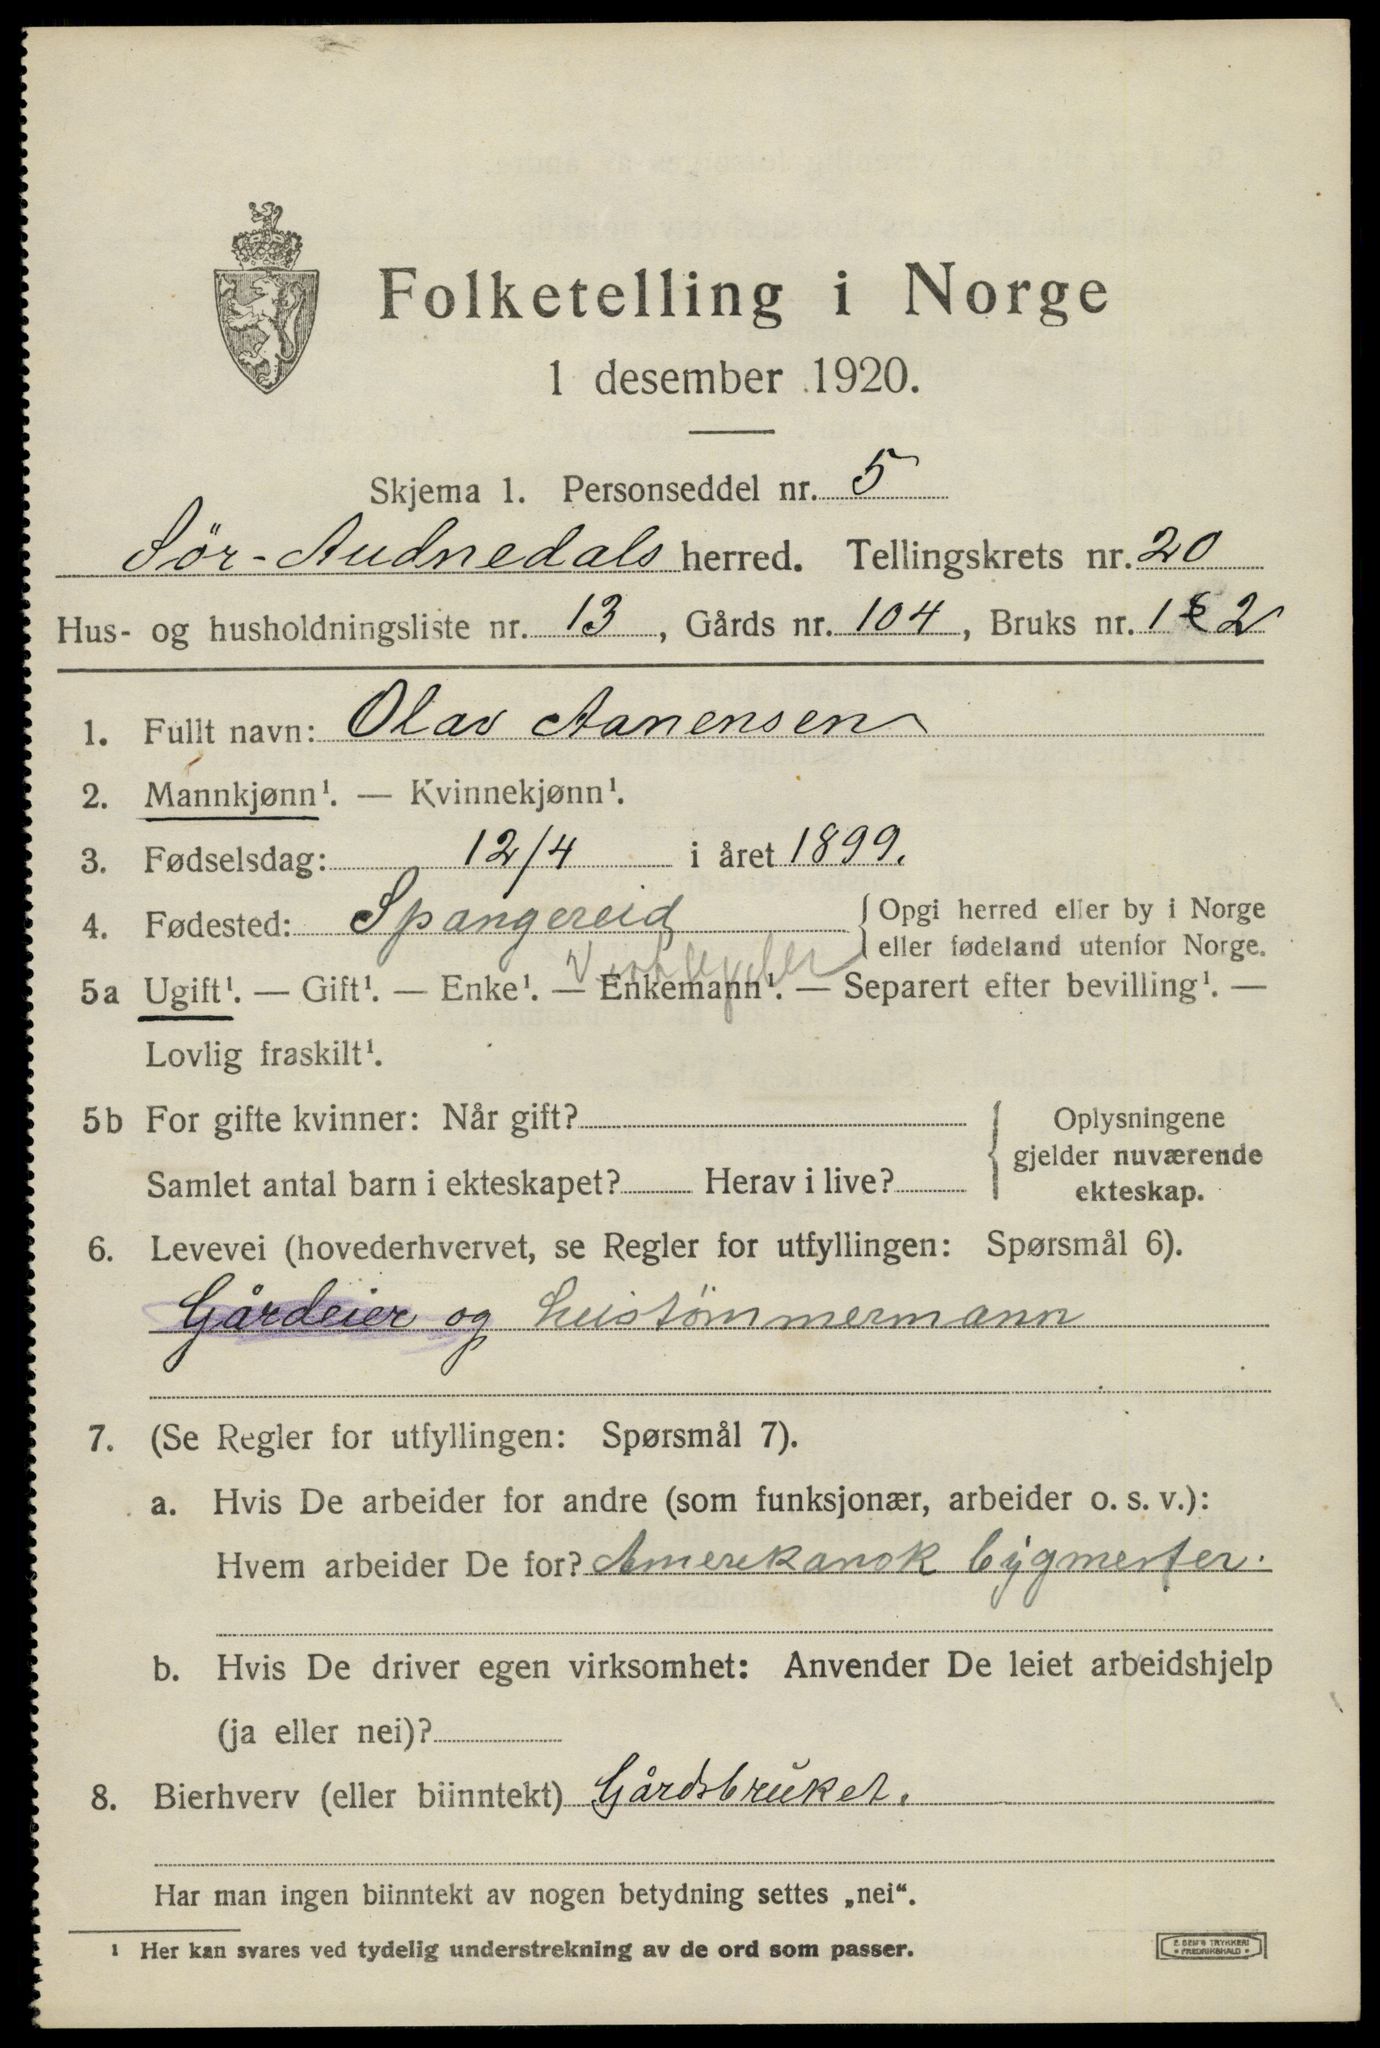 Folketelling i Norge
1 desember 1920.
Skjema 1. Personseddel nr. 5
Sör-Audnedals herred. Tellingskrets nr. 20
Hus- og husholdningsliste nr. 13, Gårds nr. 104, Bruks nr. 1 & 2
1. Fullt navn: Olav Aanensen
2. Mannkjønn¹. — Kvinnekjønn¹.
3. Fødselsdag: 12/4 i året 1899.
4. Fødested: Spangereid { Opgi herred eller by i Norge
eller fødeland utenfor Norge.
5a Ugift¹. — Gift¹. — Enke¹. — Enkemann¹. — Separert efter bevilling¹. —
Lovlig fraskilt¹.
5b For gifte kvinner: Når gift? { Oplysningene
gjelder nuværende
Samlet antal barn i ekteskapet? Herav i live? ekteskap.
6. Levevei (hovederhvervet, se Regler for utfyllingen: Spørsmål 6).
Gårdeier og hustömmermann
7. (Se Regler for utfyllingen: Spørsmål 7).
a. Hvis De arbeider for andre (som funksjonær, arbeider o. s. v.):
Hvem arbeider De for? Amerekansk bygmester.
b. Hvis De driver egen virksomhet: Anvender De leiet arbeidshjelp
(ja eller nei)?
8. Bierhverv (eller biinntekt) Gårdsbruket.
Har man ingen biinntekt av nogen betydning settes „nei“.
¹ Her kan svares ved tydelig understrekning av de ord som passer.
E. SEM'S TRYKKERI
FREDRIKSHALD